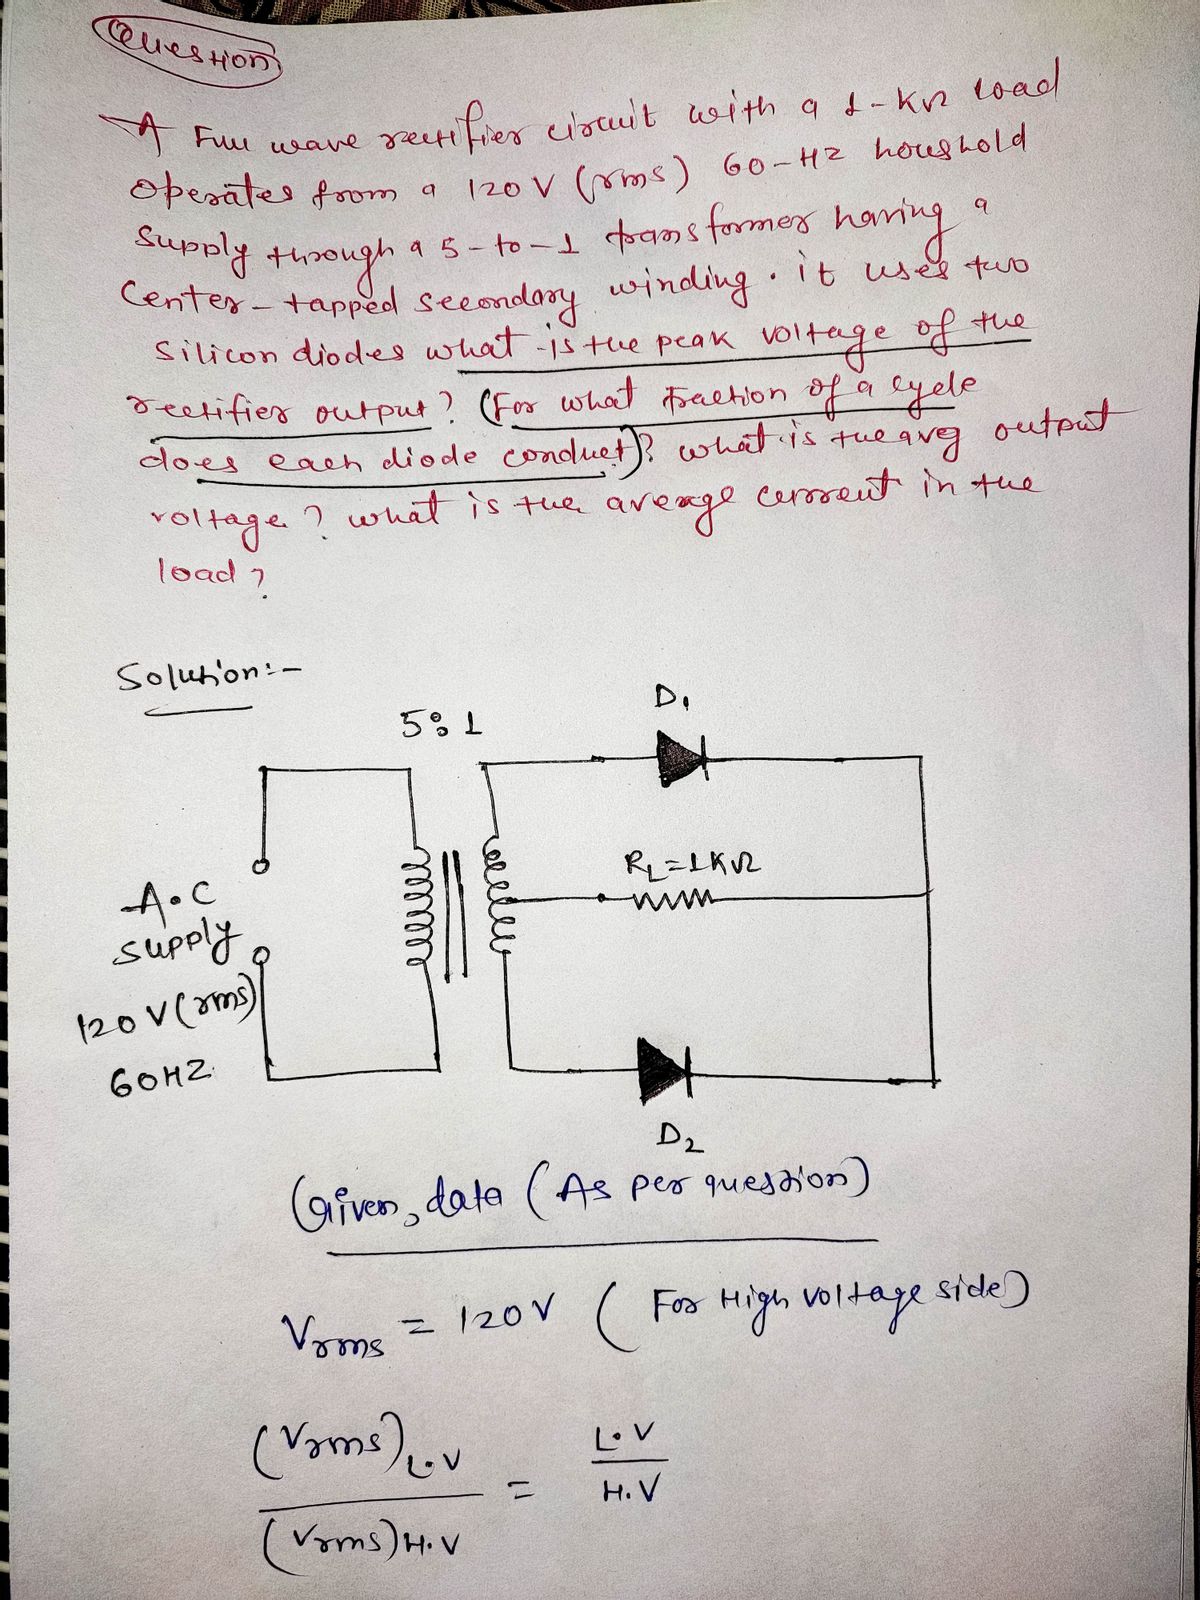 Question
A Full wave rectifier circuit with a 1-KΩ load
operates from a 120 V (rms) 60-HZ houshold
supply through a 5-to-1 transformer having a
Center-tapped secondary winding. it uses two
silicon diodes what is the peak voltage of the
rectifier output? (For what fraction of a cycle
does each diode conduct)? what is the avg output
voltage? what is the average current in the
load?
Solution:-
5:1
D1
RL=1KΩ
A.C
supply
120 V (rms)
60HZ
D2
Given, data (As per question)
Vrms = 120V ( For High voltage side)
(Vrms)L.V / (Vrms)H.V = L.V / H.V